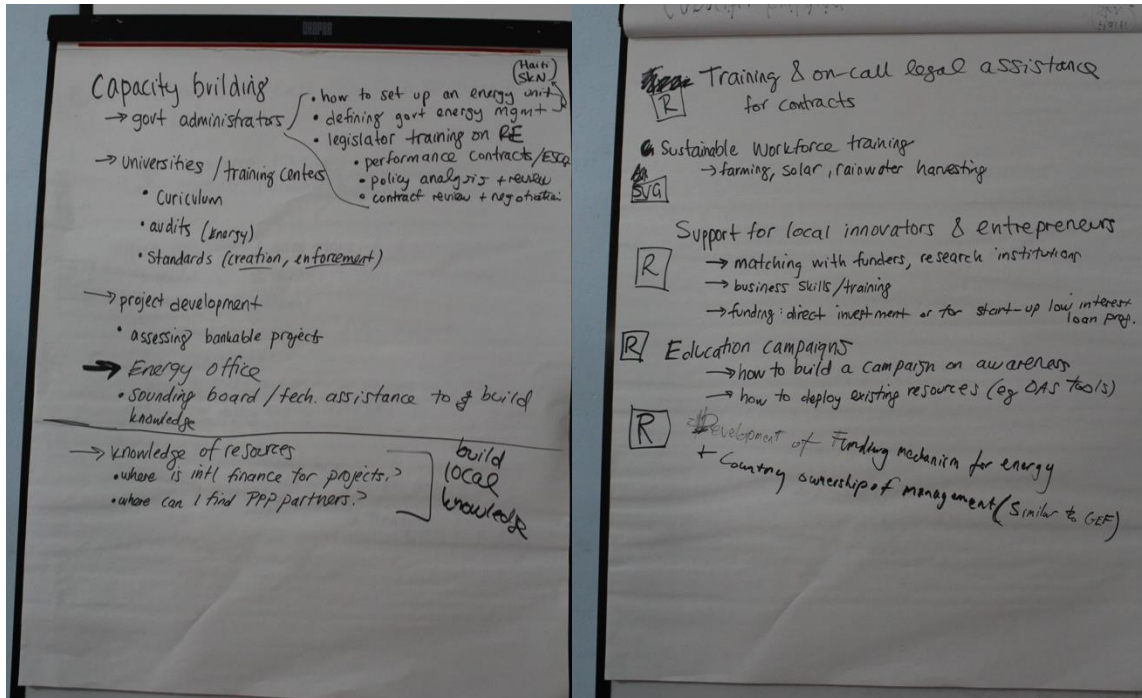 DRAPER
Capacity building
(Haiti
SKN)
→ govt administrators
• how to set up an energy unit
• defining govt energy mgmt
• legislator training on RE
• performance contracts/ESCO
• policy analysis + review
• contract review + negotiation
→ Universities / training centers
• Curiculum
• audits (energy)
• Standards (creation, enforcement)
→ project development
• assessing bankable projects
→ Energy office
• sounding board / tech. assistance to build
knowledge
→ knowledge of resources
• where is intl finance for projects?
• where can I find PPP partners?
build
local
knowledge
R
Training & on-call legal assistance
for contracts
Sustainable workforce training
→ farming, solar, rainwater harvesting
SVG
Support for local innovators & entrepreneurs
R
→ matching with funders, research institutions
→ business skills/training
→ funding: direct investment or for start-up low interest
loan prog.
R
Education campaigns
→ how to build a campaign on awareness
→ how to deploy existing resources (eg OAS tools)
R
Development of Funding mechanism for energy
+ Country ownership of management (Similar to GEF)